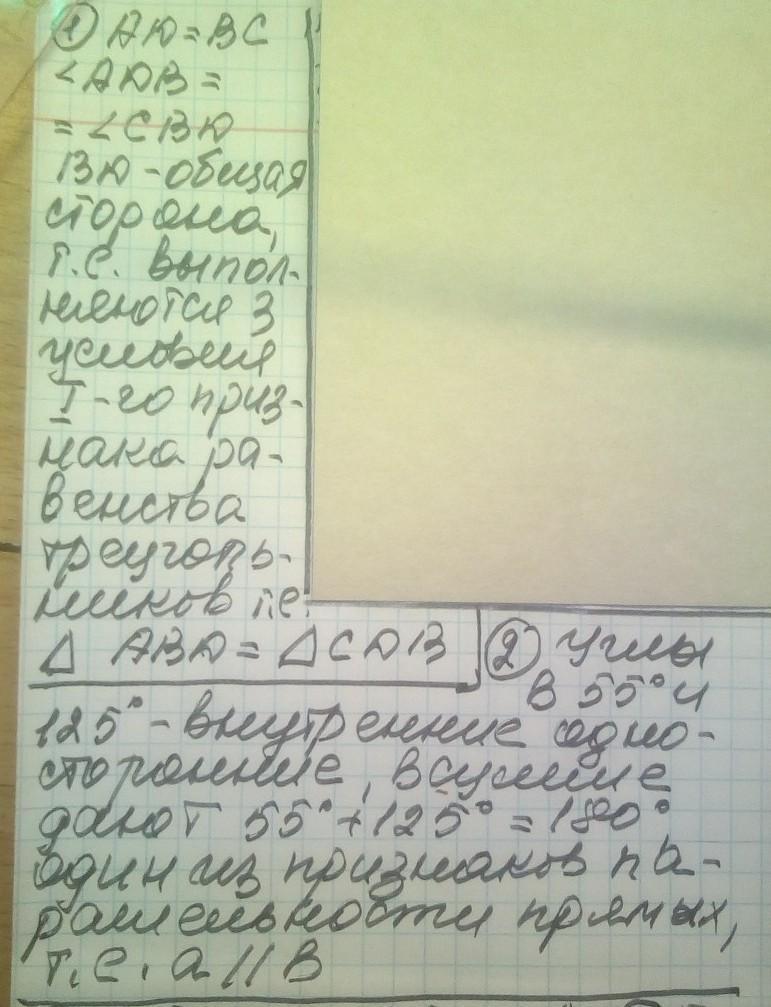 ① AD = BC
∠ADB =
= ∠CBD
BD - общая
сторона,
т.е. выпол-
няются 3
условия
I-го приз-
нака ра-
венства
треуголь-
ников т.е.
△ ABD = △CDB
② Углы
в 55° и
125° - внутренние одно-
сторонние, в сумме
дают 55° + 125° = 180°
один из признаков па-
раллельности прямых,
т.е. a || b